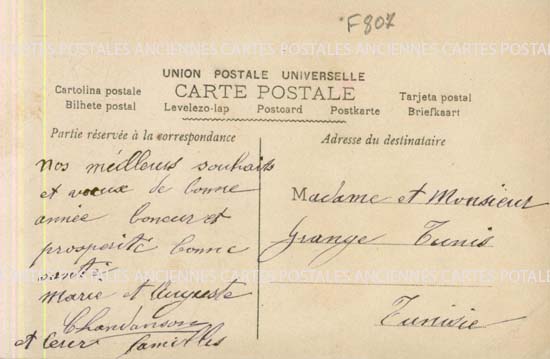 F 807
CARTES POSTALES ANCIENNES CARTES POSTALES ANCIENNES CARTES POSTALES
UNION POSTALE UNIVERSELLE
CARTE POSTALE
Cartolina postale
Bilhete postal
Levelezo-lap
Postcard
Postkarte
Tarjeta postal
Briefkaart
Partie réservée à la correspondance
Nos meilleurs souhaits
et vœux de bonne
année boneur et
prosperité bonne
santé
Marie et Auguste
Chandanson
et leur familles
Adresse du destinataire
Madame et Monsieur
Grange Tunis
Tunisie